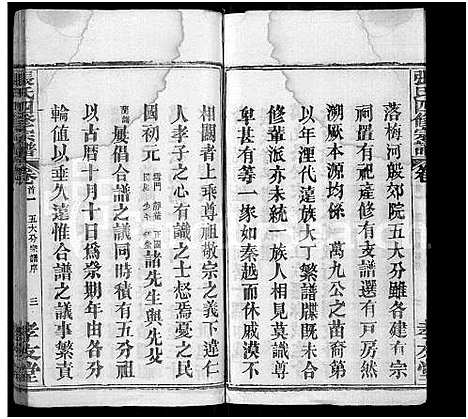 張氏四修宗譜 卷首
落梅河殷郊院五大分雖各建有宗
祠而祖遺祀產經修有支譜選有戶房然
溯厥本源均係萬九公之苗裔第
以年湮代遠族大丁繁譜牒既未合
修輩派亦未統一族人相見莫識尊
卑甚有等一家如秦越而休戚漠不
相關者上乖尊祖敬宗之義下違仁
人孝子之心有識之士惄焉憂之民
國初元
諸先生與先父
屢倡合譜之議同時復有五分祖
以古曆十月十日爲祭期年由各分
輪值以垂久遠惟合譜之議事繁責
張氏四修宗譜 卷首 五大分宗譜序 三 孝友堂